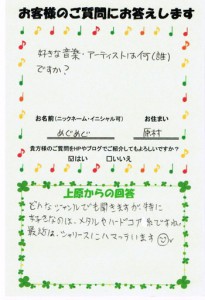 お客様のご質問にお答えします
好きな音楽・アーティストは何(誰)
ですか?
お名前(ニックネーム・イニシャル可)
お住まい
めぐめぐ
原村
貴方様のご質問をHPやブログでご紹介してもよろしいですか?
☑はい
□いいえ
上原からの回答
どんなジャンルでも聞きますが、特に
好きなのは、メタルやハードコア系ですね。
最近は、シャリースにハマッています